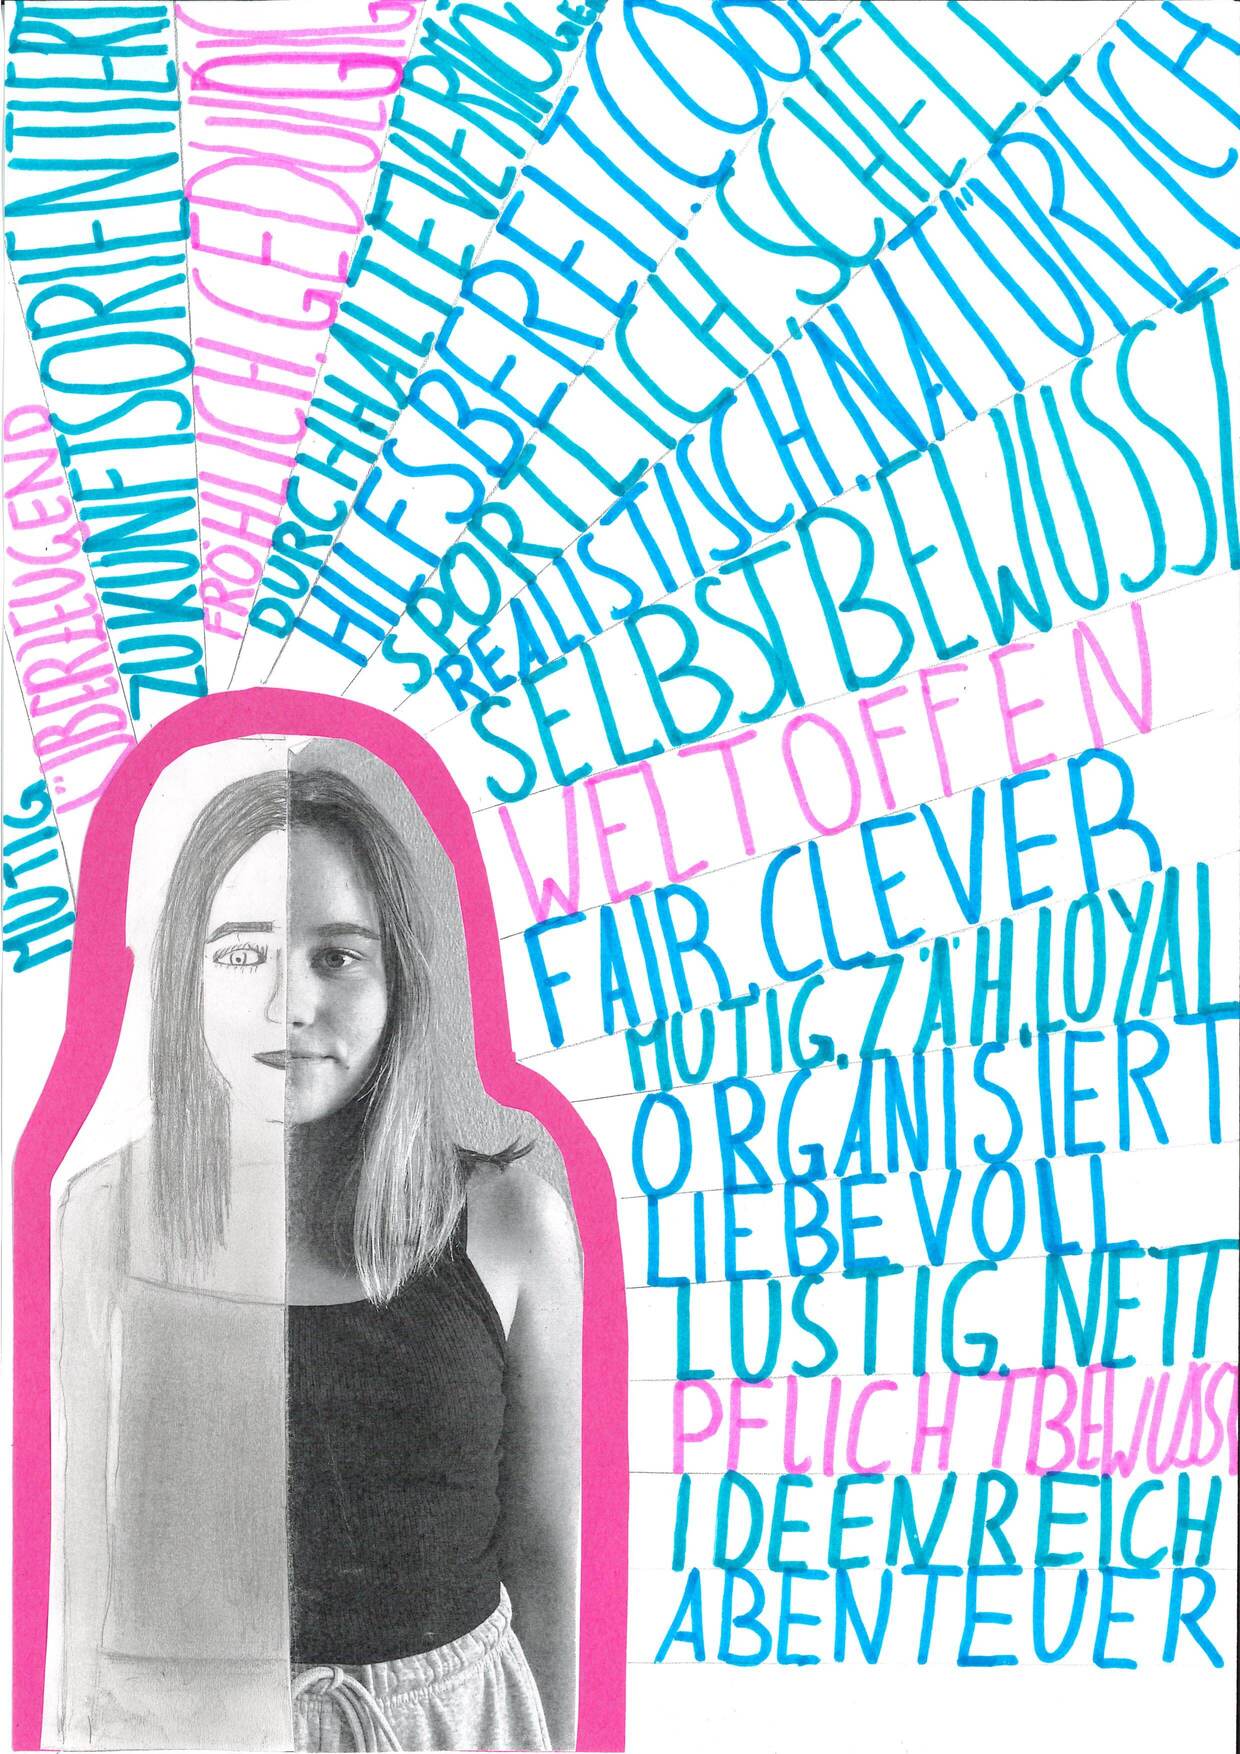 MUTIG
ÜBERZEUGEND
ZUKUNFTSORIENTIERT
FRÖHLICH. GEDULDIG
DURCHHALTEVERMÖGEN
HILFSBEREIT COOL
SPORTLICH SCHELL
REALISTISCH. NATÜRLICH
SELBSTBEWUSST
WELTOFFEN
FAIR. CLEVER
MUTIG. ZÄH. LOYAL
ORGANISIERT
LIEBEVOLL
LUSTIG. NETT
PFLICHTBEWUSST
IDEENREICH
ABENTEUER